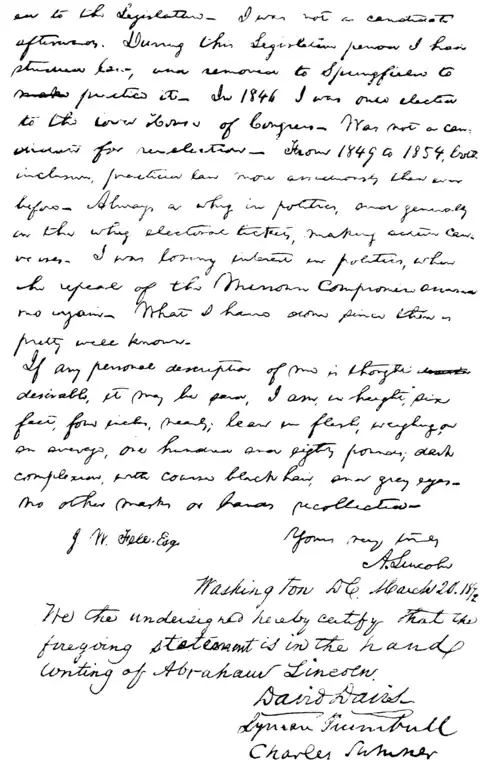 ed to the Legislature. I was not a candidate
afterwards. During this Legislative period I had
studied law, and removed to Springfield to
make practice it. In 1846 I was once elected
to the lower House of Congress. Was not a can-
didate for re-election. From 1849 to 1854, both
inclusive, practiced law more assiduously than ever
before. Always a whig in politics, and generally
on the whig electoral tickets, making active can-
vasses. I was losing interest in politics, when
the repeal of the Missouri Compromise aroused
me again. What I have done since then is
pretty well known.
If any personal description of me is thought
desirable, it may be said, I am, in height, six
feet, four inches, nearly; lean in flesh, weighing, on
an average, one hundred and eighty pounds; dark
complexion, with coarse black hair, and grey eyes.
No other marks or brands recollected.
J. W. Fell. Esq. Yours very truly
A. Lincoln
Washington DC, March 20. 18
We the undersigned hereby certify that the
foregoing statement is in the hand
writing of Abraham Lincoln.
David Davis
Lyman Trumbull
Charles Sumner